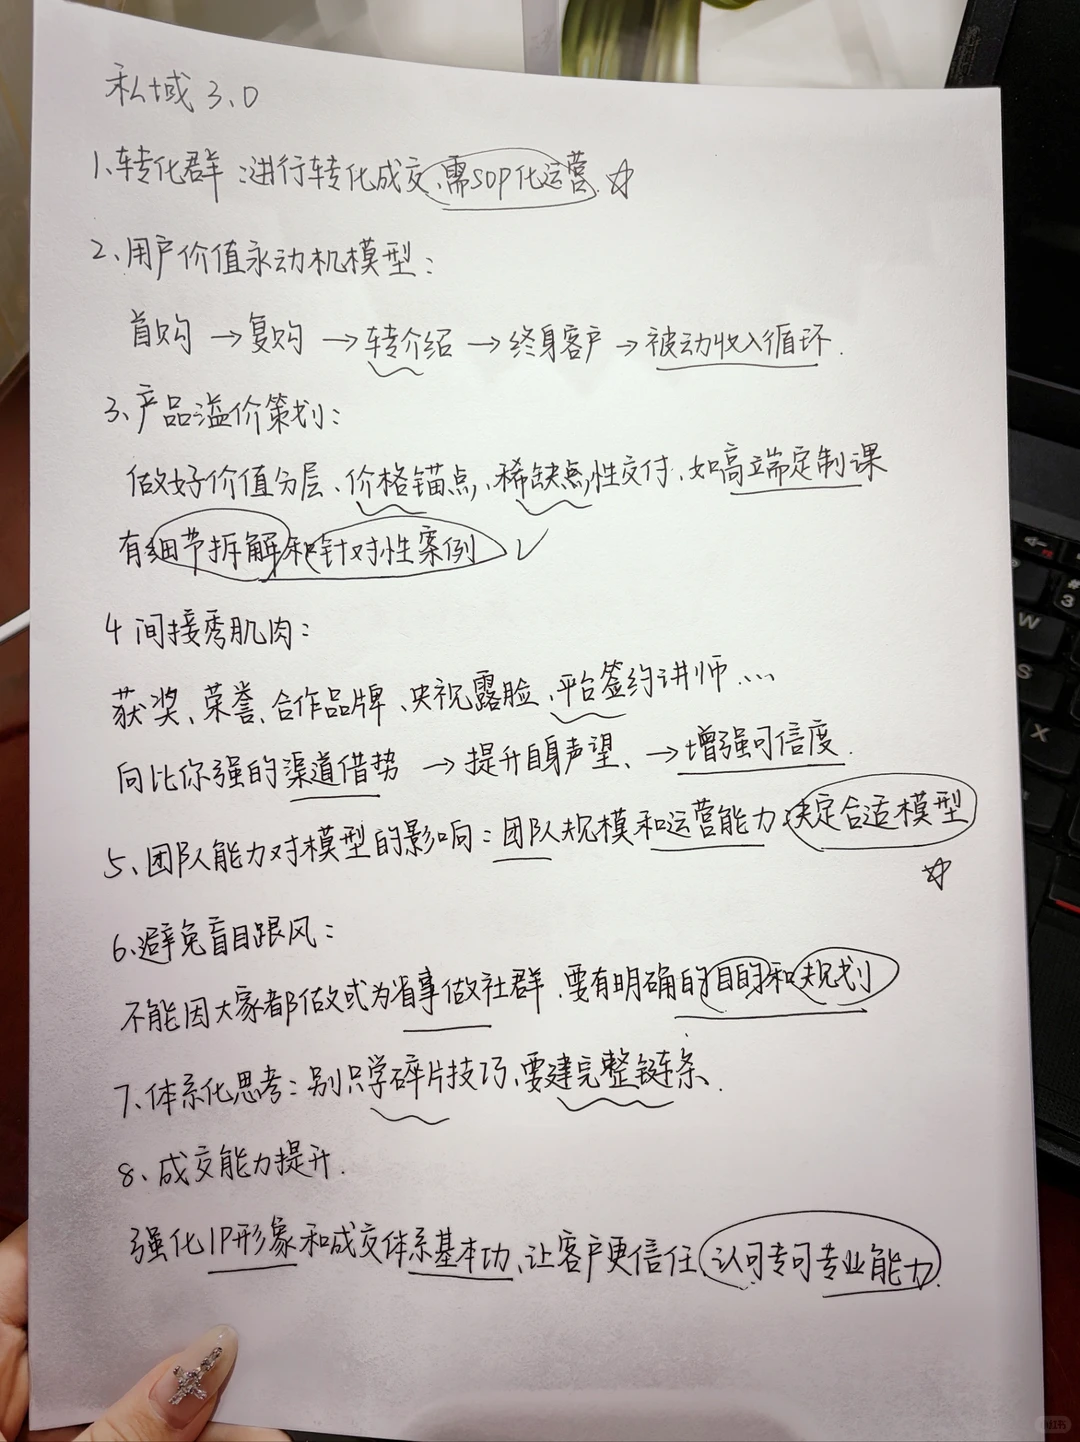 私域3.0
1、转化群：进行转化成交、需SOP化运营.☆
2、用户价值永动机模型：
首购→复购→转介绍→终身客户→被动收入循环.
3、产品溢价策划：
做好价值分层、价格锚点、稀缺点性交付.如高端定制课
有细节拆解和针对性案例 ✓
4 间接秀肌肉：
获奖、荣誉、合作品牌、央视露脸、平台签约讲师...
向比你强的渠道借势→提升自身声望、→增强可信度.
5、团队能力对模型的影响：团队规模和运营能力决定合适模型
☆
6、避免盲目跟风：
不能因大家都做或为省事做社群.要有明确的目的和规划
7、体系化思考：别只学碎片技巧、要建完整链条.
8、成交能力提升.
强化IP形象和成交体系基本功、让客户更信任、认可专可专业能力.
W
S
X
#
3